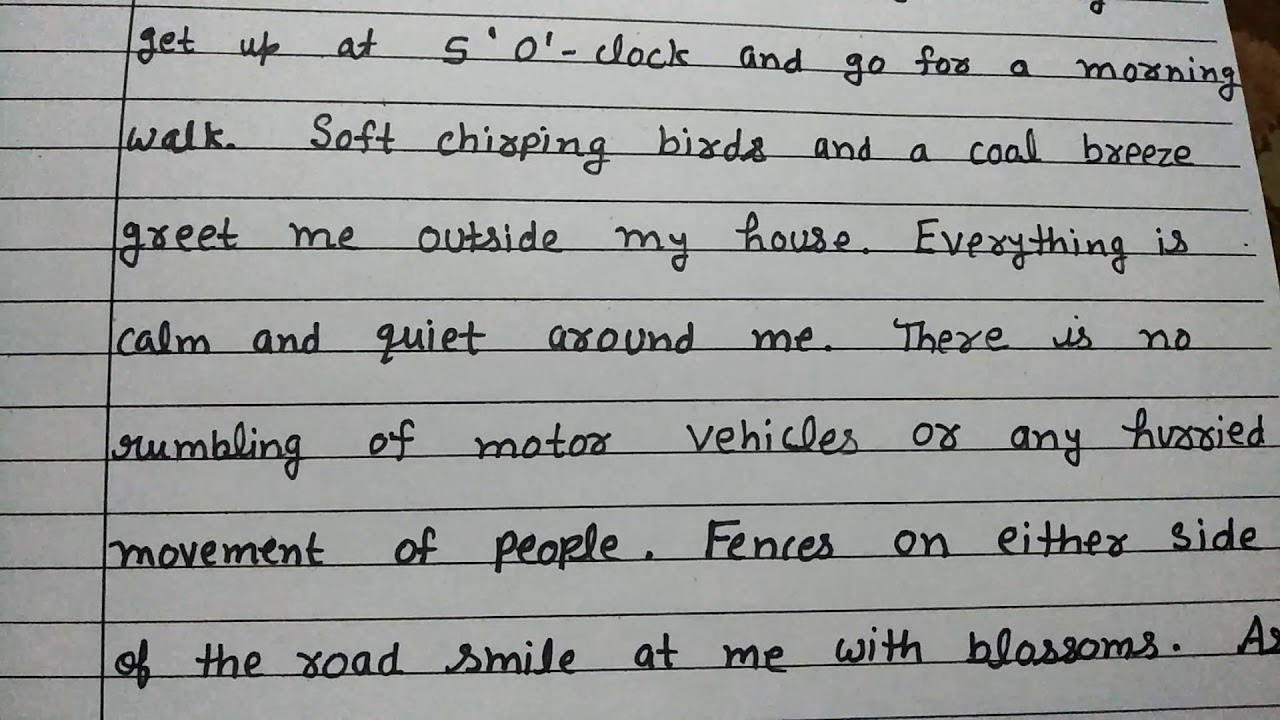 get up at 5'O'-clock and go for a morning
walk. Soft chirping birds and a coal breeze
greet me outside my house. Everything is
calm and quiet around me. There is no
rumbling of motor vehicles or any hurried
movement of people. Fences on either side
of the road smile at me with blossoms. As